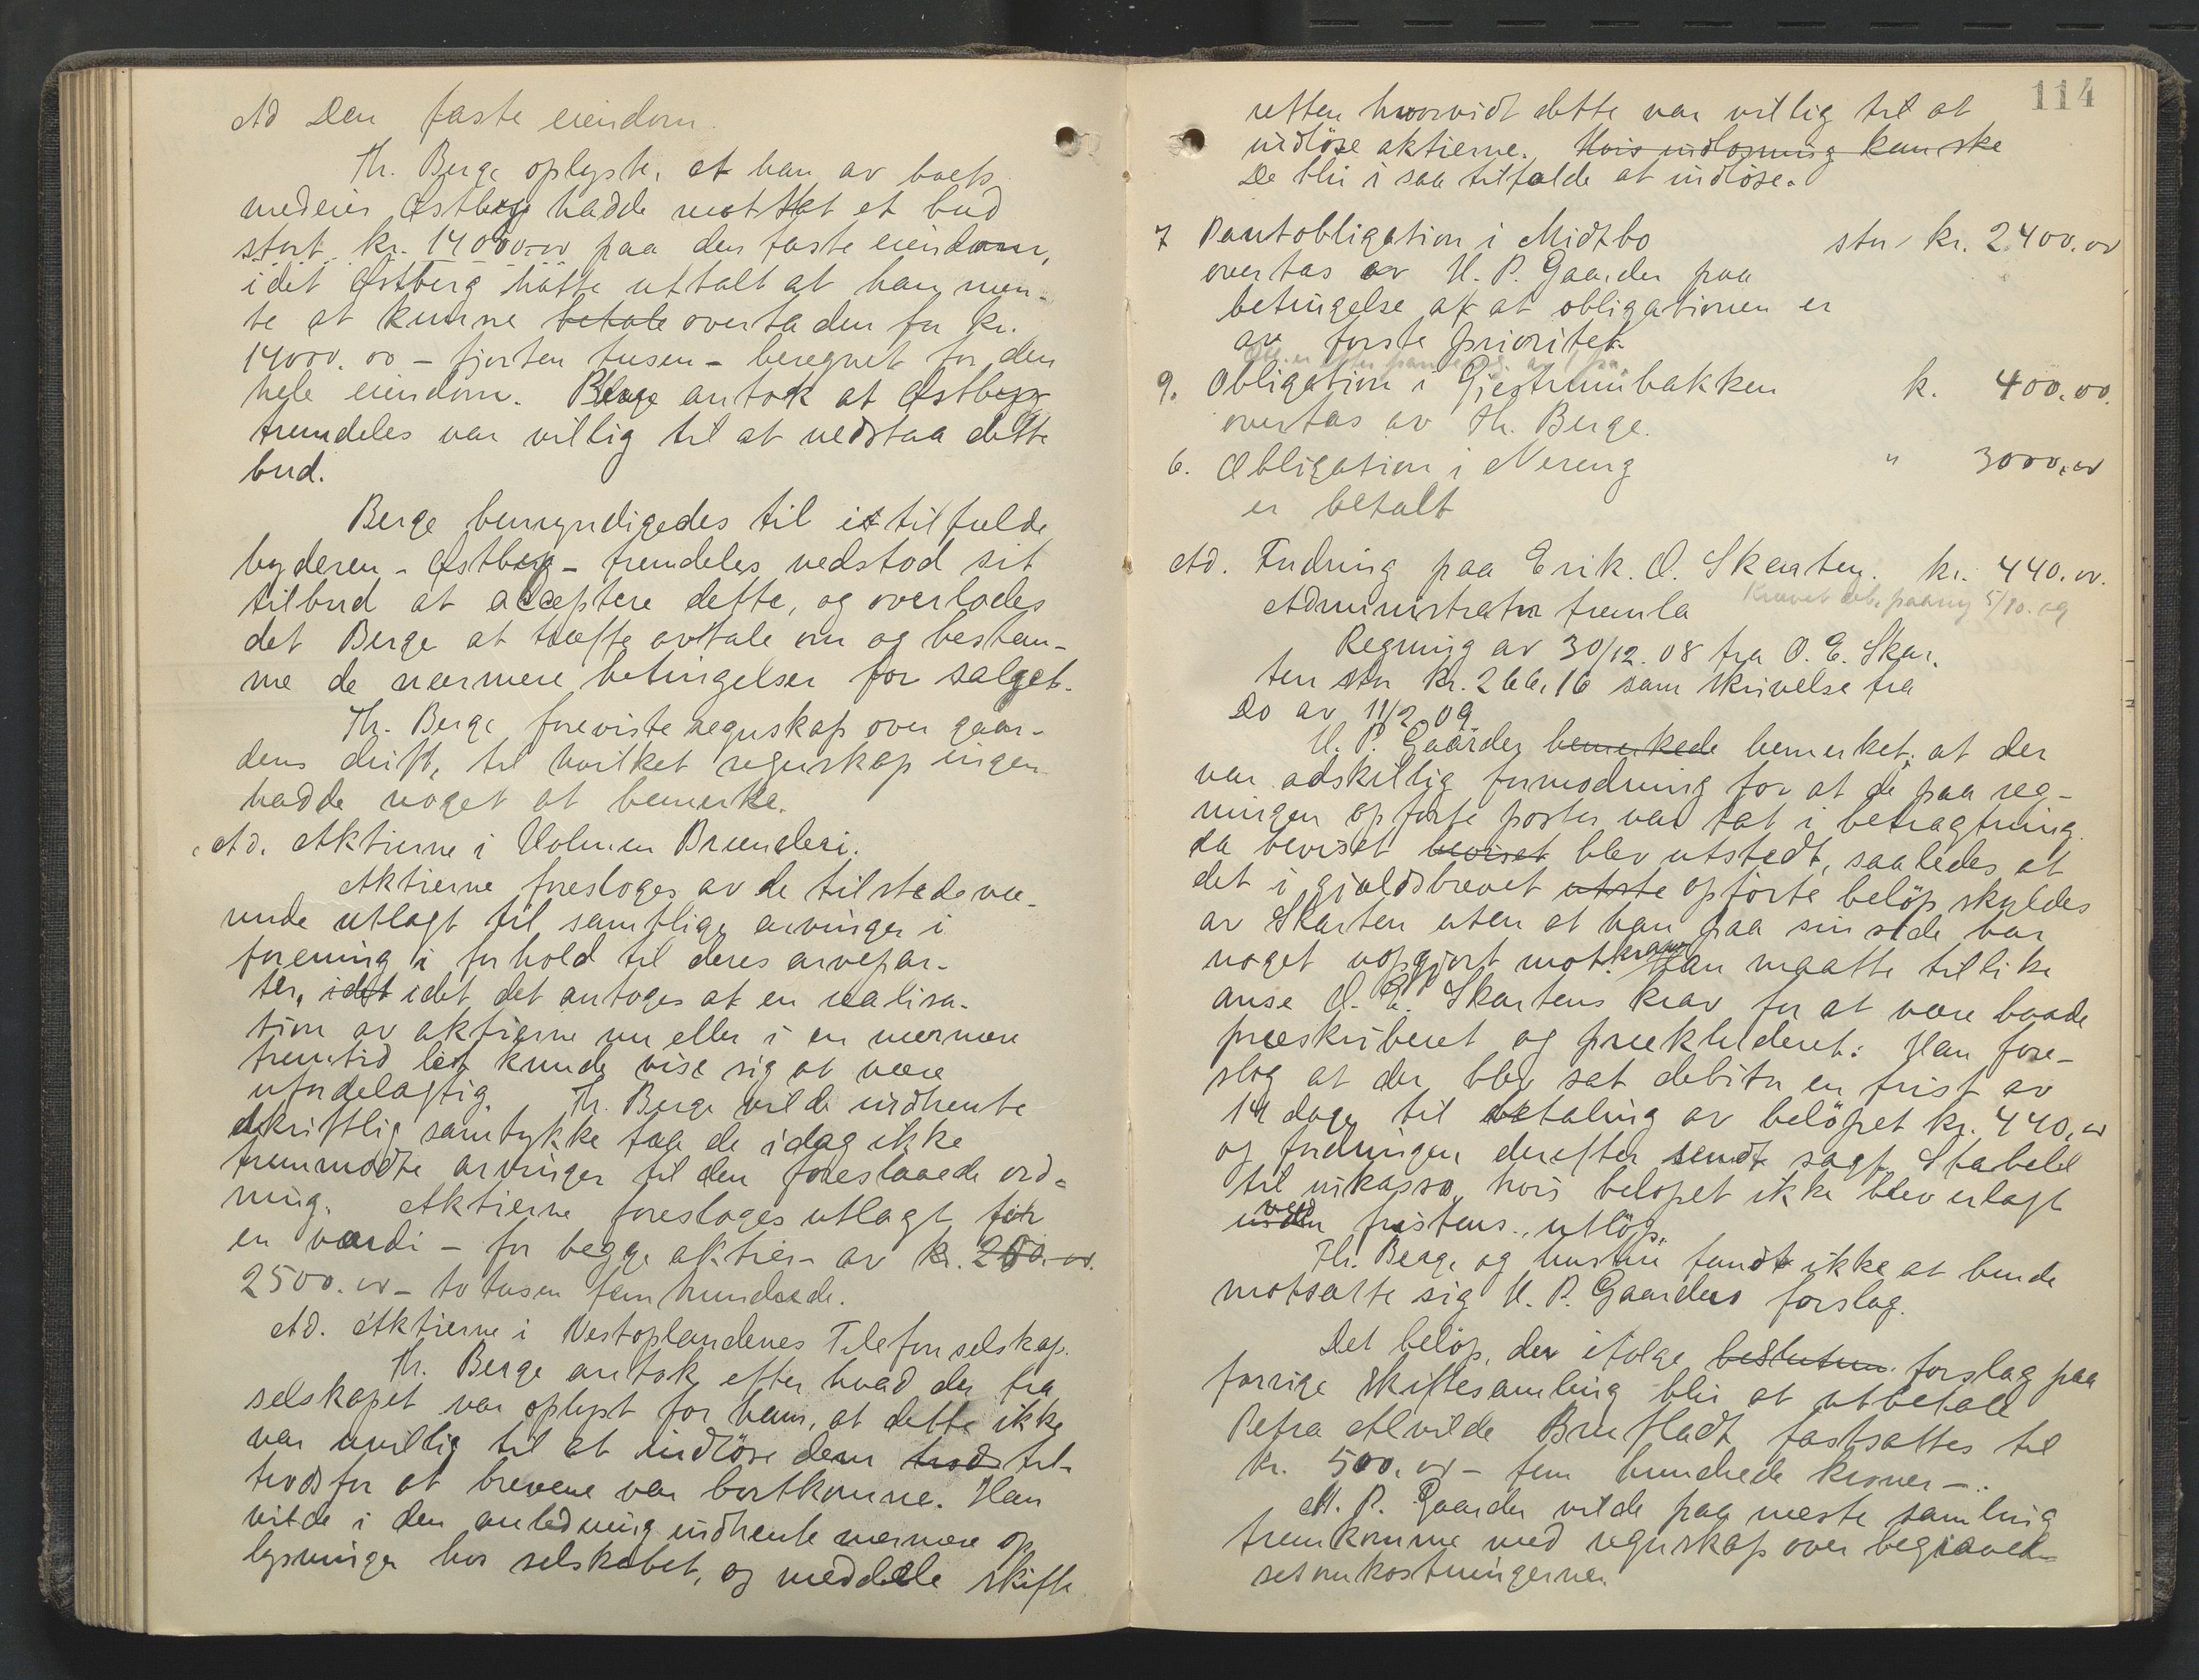 Ad Den faste eiendom.
Th. Berge oplyste, at han av boets
medeier Østberg hadde mottat et bud
stort kr. 14000.00 paa den faste eiendom,
idet Østberg hatte uttalt at han men-
te at kunne betale overta den for kr.
14000.00 – fjorten tusen – beregnet for den
hele eiendom. Berge antok at Østberg
fremdeles var villig til at vedstaa dette
bud.
Berge bemyndigedes til i tilfælde
byderen – Østberg – fremdeles vedstod sit
tilbud at acceptere dette, og overlodes
det Berge at træffe avtale om og bestem-
me de nærmere betingelser for salget.
Th. Berge foreviste regnskap over gaar-
dens drift, til hvilket regnskap ingen
hadde noget at bemerke.
Ad. Aktierne i Holmen Brænderi.
Aktierne foresloges av de tilstedevæ-
rende utlagt til samtlige arvinger i
forening i forhold til deres arvepar-
ter, idet idet det antoges at en realisa-
tion av aktierne nu eller i en nærmere
fremtid let kunde vise sig at være
ufordelagtig. Th. Berge vilde indhente
skriftlig samtykke fra de idag ikke
fremmødte arvinger til den foreslaaede ord-
ning. Aktierne foresloges utlagt for
en værdi – for begge aktier – av kr. 200.00.
2500.00 – to tusen fem hundrede.
Ad. Aktierne i Vestoplandenes Telefonselskap.
Th. Berge antok efter hvad der fra
selskapet var oplyst for ham, at dette ikke
var uvillig til at indløse dem trods til-
trods for at brevene var bortkomne. Han
vilde i den anledning indhente nærmere op
lysninger hos selskabet, og meddele skifte
114
retten hvorvidt dette var villig til at
indløse aktierne. Hvis indløsning kan ske
De blir i saa tilfælde at indløse.
7 Pantobligation i Midtbo stor kr. 2400.00
overtas av H. P. Gaarder paa
betingelse af at obligationen er
av første prioritet.
9. Obligation i Gjestrumbakken k. 400.00.
overtas av Th. Berge.
6. Obligation i Nereng " 3000.00
er betalt
Ad. Fodring paa Erik. O. Skarten. kr. 440.00.
Administrator fremla Krævet deb. paany 5/10. 09
Regning av 30/12. 08 fra O. E. Skar-
ten stor kr. 266,16 samt skrivelse fra
Do av 11/2 09
H. P. Gaarder bemerkede bemerket, at der
var adskillig formodning for at de paa reg-
ningen opførte poster var tat i betragtning
da beviset beviset blev utstedt, saaledes at
det i gjældsbrevet utste opførte beløp skyldes
av Skarten uten at han paa sin side har
noget uopgjort motkrav. Han maatte tillike
anse O. E. Skartens krav for at være baade
præskriberet og prækluderet. Han fore-
slog at der blev sat debitor en frist av
14 dage til betaling av beløpet kr. 440.00
og fordringen derefter sendt sagf. Stabell
til inkasso, hvis beløpet ikke blev erlagt
inden ved fristens utløp.
Th. Berge og hustru fandt ikke at burde
motsætte sig H. P. Gaarders forslag.
Det beløp, der ifølge beslutnin forslag paa
forrige skiftesamling blir at utbetale
Petra Alvilde Brufladt fastsattes til
kr. 500.00 – fem hundrede kroner –.
H. P. Gaarder vilde paa næste samling
fremkomme med regnskap over begravel-
sesomkostningerne.